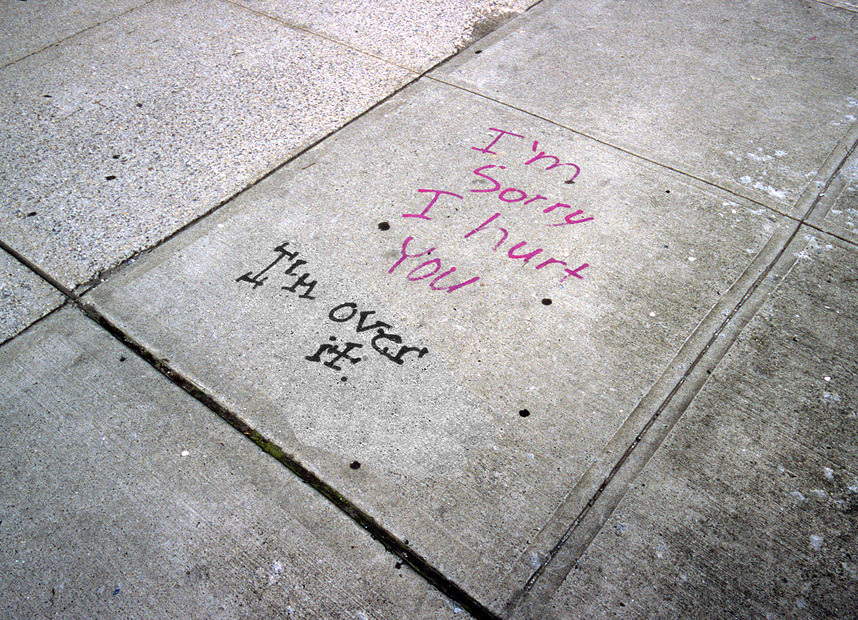 I'm
Sorry
I hurt
YOU
I'm over
it.